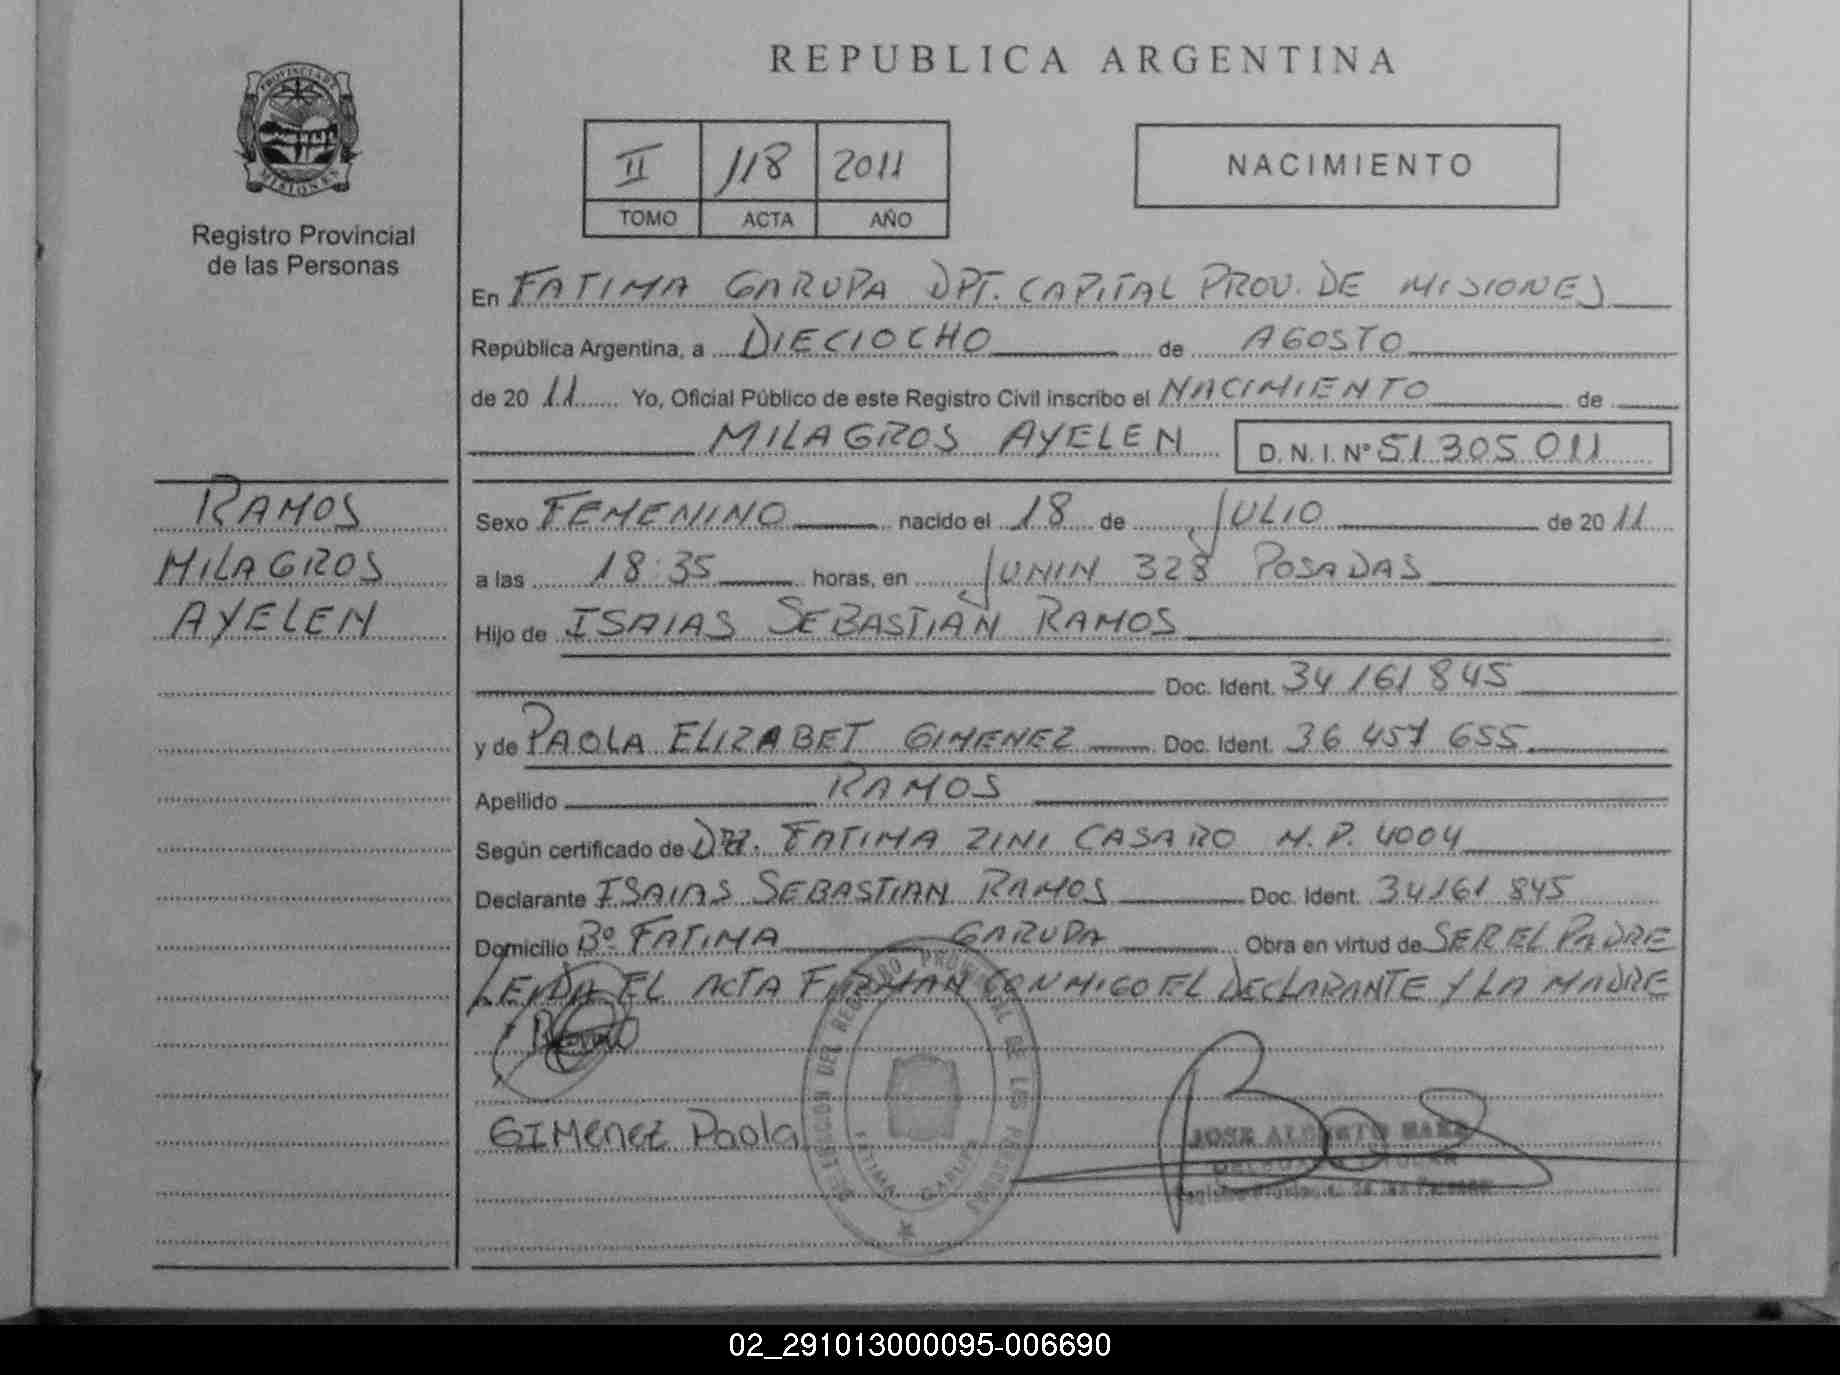 REPUBLICA ARGENTINA
PROVINCIA DE
MISIONES
Registro Provincial
de las Personas
II 118 2011
TOMO ACTA AÑO
NACIMIENTO
En FATIMA GARUPA DPT. CAPITAL PROV. DE MISIONES
República Argentina, a DIECIOCHO de AGOSTO
de 20 11 Yo, Oficial Público de este Registro Civil inscribo el NACIMIENTO de
MILAGROS AYELEN D. N. I. Nº 51 305 011
RAMOS
MILAGROS
AYELEN
Sexo FEMENINO nacido el 18 de JULIO de 20 11
a las 18:35 horas, en JUNIN 328 POSADAS
Hijo de ISAIAS SEBASTIAN RAMOS
Doc. Ident. 34 161 845
y de PAOLA ELIZABET GIMENEZ Doc. Ident. 36 457 655
Apellido RAMOS
Según certificado de DRA. FATIMA ZINI CASARO M. P. 4004
Declarante ISAIAS SEBASTIAN RAMOS Doc. Ident. 34161 845
Domicilio Bº FATIMA GARUPA Obra en virtud de SER EL PADRE
LEIDA EL ACTA FIRMAN CONMIGO EL DECLARANTE Y LA MADRE
GIMENEZ Paola
DELEGACION DEL REGISTRO PROVINCIAL DE LAS PERSONAS
FATIMA GARUPA
JOSE ALBERTO
DELEGADO TITULAR
Registro Provincial de las Personas
02_291013000095-006690